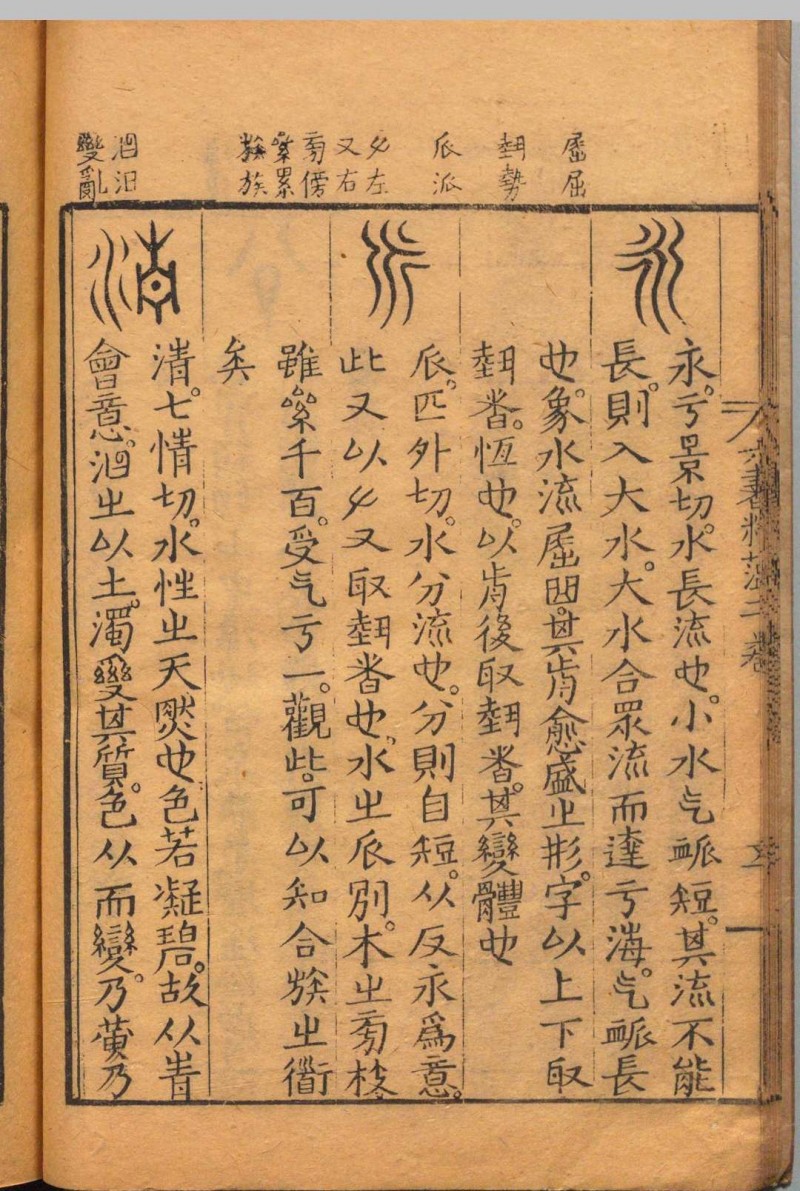 屈屈
𡎐勢
𠂢派
𠂇左
又右
㫄傍
絫累
𣄣族
洍汨
變亂
永。亏景切。水長流也。小水气脈短。其流不能
長。則入大水。大水合眾流而達亏海。气脈長
也。象水流屈曲。其歬愈盛㞢形。字以上下取
埶者。恆也。以歬後取埶者。其變體也
𠂢。匹外切。水分流也。分則自短。从反永爲意。
此又以𠂇又取埶者也。水㞢𠂢別。木㞢㫄枝。
雖絫千百。受气亏一。觀此。可以知合族㞢衜
矣
清。七情切。水性㞢天然也色若凝碧。故从青
會意。㞢以土。濁變其質。色从而變。乃黃乃
六書精蘊二卷